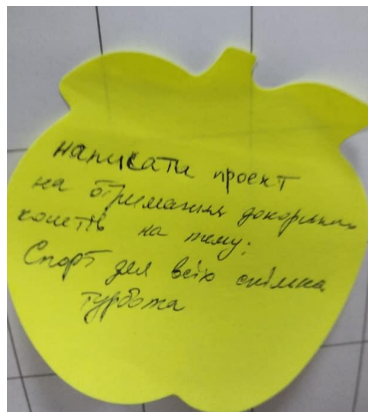 написати проект
на отримання донорських
коштів на тему:
Спорт для всіх спільна
турбота